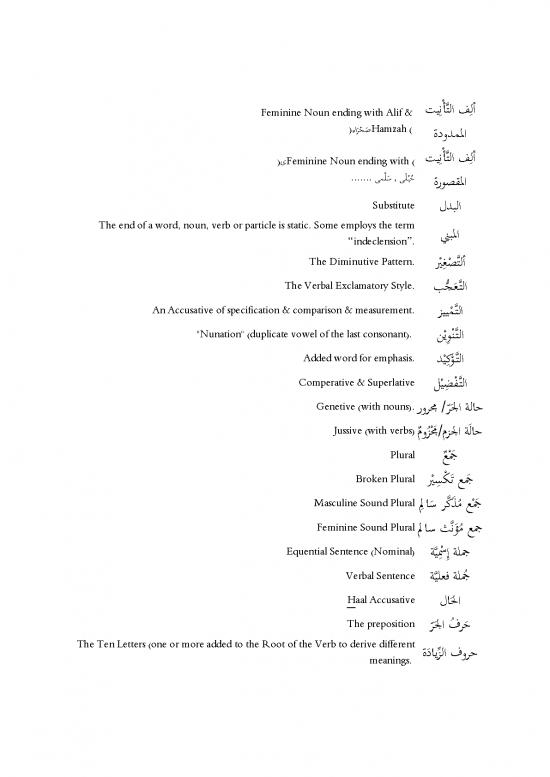 Feminine Noun ending with Alif & أَلِف التَّأْنِيت
Hamzah (صَحْرَاء) الممدودة
Feminine Noun ending with (ى) أَلِف التَّأْنِيت
حُبْلَى , سَلْمى ....... المقصورة
Substitute البدل
The end of a word, noun, verb or particle is static. Some employs the term
“indeclension”. المبني
The Diminutive Pattern. اَلتَّصْغِيْر
The Verbal Exclamatory Style. التَّعَجُّب
An Accusative of specification & comparison & measurement. التَّمْيِيز
"Nunation" (duplicate vowel of the last consonant). التَّنْوِيْن
Added word for emphasis. التَّوْكِيْد
Comperative & Superlative التَّفْضِيْل
Genetive (with nouns). حالة الجَرّ/ مجرور
Jussive (with verbs) حالَة الجَزم/مَجْزُومٌ
Plural جَمْعٌ
Broken Plural جَمع تَكْسِيْر
Masculine Sound Plural جَمْع مُذَكَّر سَالِم
Feminine Sound Plural جمع مُؤنَّث سالم
Equential Sentence (Nominal) جملة إِسْمِيَّة
Verbal Sentence جُملة فعليَّة
Haal Accusative الحَال
The preposition حَرفُ الجَرّ
The Ten Letters (one or more added to the Root of the Verb to derive different
meanings. حروف الزِّيادَة